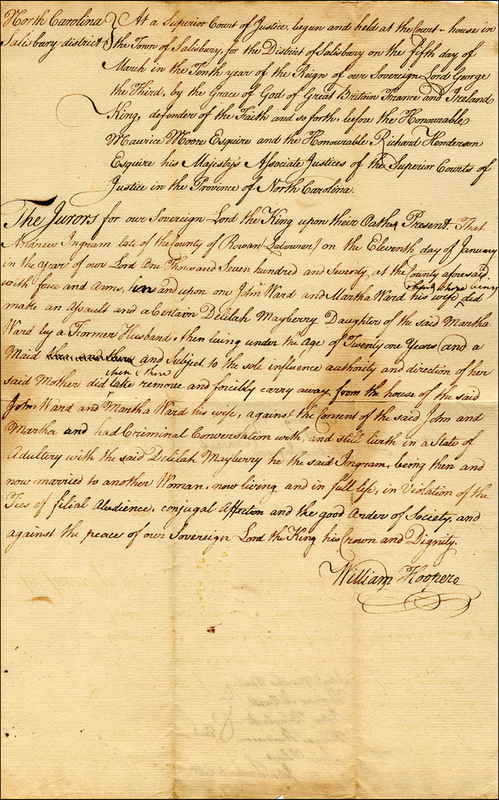 North Carolina } At a Superior Court of Justice, begun and held at the Court-house in
Salisbury district } the Town of Salisbury, for the District of Salisbury on the fifth day of
March in the Tenth year of the Reign of our Sovereign Lord George
the Third, by the Grace of God of Great Britain France and Ireland
King, defender of the Faith and so forth, before the Honourable
Maurice Moore Esquire and the Honourable Richard Henderson
Esquire his Majestys Associate Justices of the Superior Courts of
Justice in the Province of North Carolina.
The Jurors for our Sovereign Lord the King upon their Oaths Present. That
Andrew Ingram late of the County of (Rowan Labourer) on the Eleventh day of January
in the Year of our Lord One Thousand Seven hundred and Seventy, at the County aforesaid
with force and Arms, in and upon one John Ward and Martha Ward his wife then & there being did
make an Assault and a Certain Delilah Mayberry Daughter of the said Martha
Ward by a Former Husband, then being under the Age of Twenty one Years (and a
Maid and Subject to the sole influence authority and direction of her
said Mother did then & there take remove and forcibly carry away from the house of the said
John Ward and Martha Ward his wife, against the Consent of the said John and
Martha and had Criminal Conversation with, and still liveth in a State of
Adultery with the said Delilah Mayberry he the said Ingram, being then and
now married to another Woman, now living and in full life, in Violation of the
Ties of filial Obedience, conjugal Affection and the good Order of Society, and
against the peace of our Sovereign Lord the King his Crown and Dignity.
William Hooper